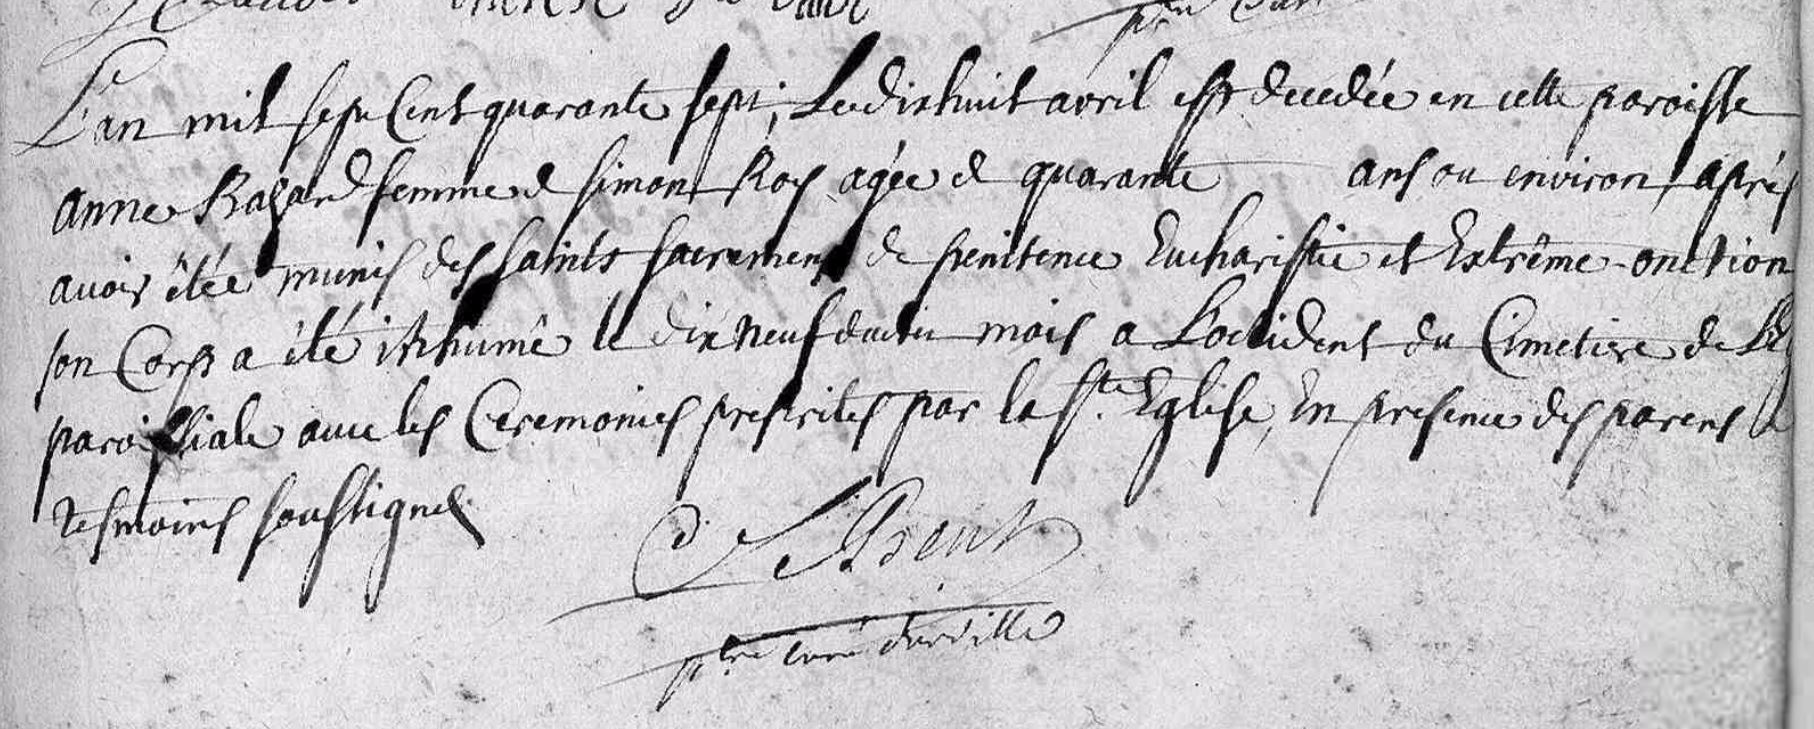 L'an mil sept Cent quarante sept, Le dixhuit avril est decedée en cette paroisse
anne Ragard femme de simon Roy agée de quarante ans ou environ, aprés
avoir êtée munis des saints sacremens de penitence Eucharistie et Extrême-onction
son Corps a êté inhumê le dix neuf dudit mois a L'occident du Cimetiere de
paroissiale avec les Ceremonies prescrites par la Ste. Eglise, En presence des parens &
tesmoins soussignes
ptre curé